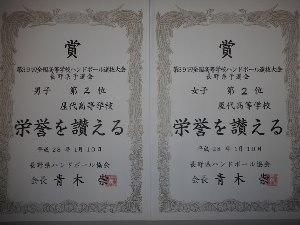 賞
第39回全国高等学校ハンドボール選抜大会
長野県予選会
男子 第2位
屋代高等学校
栄誉を讃える
平成28年1月10日
長野県ハンドボール協会
会長 青木 崇
賞
第39回全国高等学校ハンドボール選抜大会
長野県予選会
女子 第2位
屋代高等学校
栄誉を讃える
平成28年1月10日
長野県ハンドボール協会
会長 青木 崇